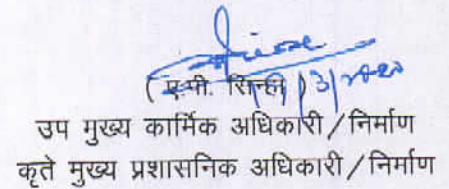 (ए.पी. सिन्हा)
उप मुख्य कार्मिक अधिकारी/निर्माण
कृते मुख्य प्रशासनिक अधिकारी/निर्माण